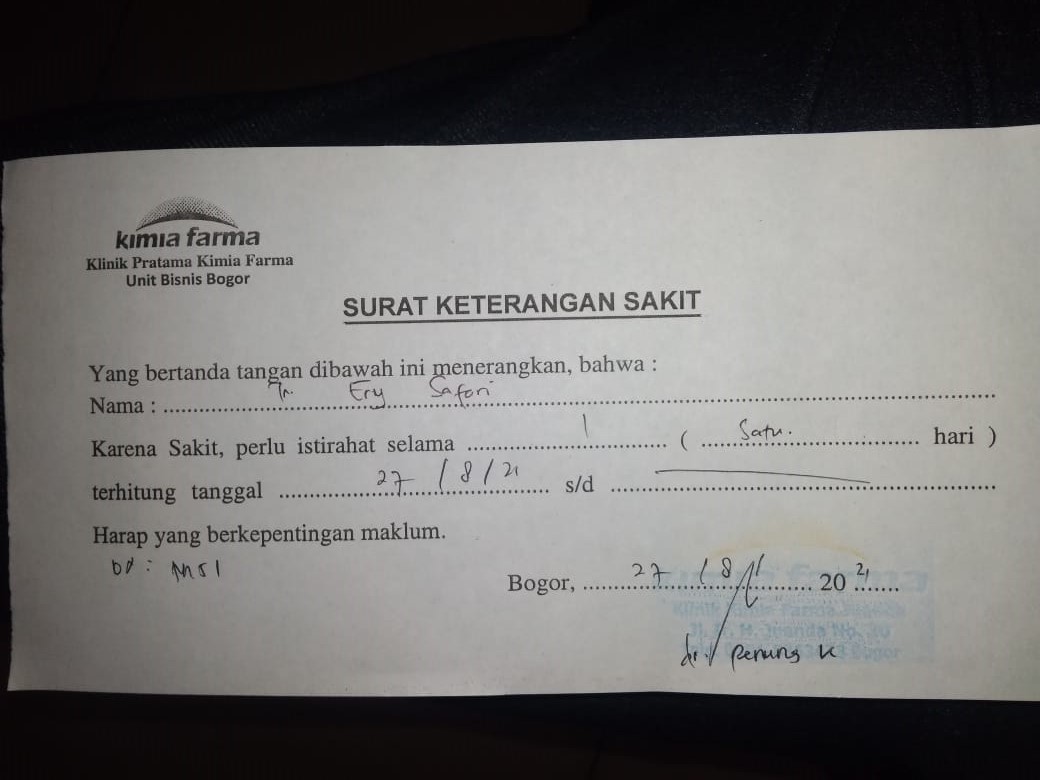 kimia farma
Klinik Pratama Kimia Farma
Unit Bisnis Bogor
SURAT KETERANGAN SAKIT
Yang bertanda tangan dibawah ini menerangkan, bahwa :
Nama : Tn. Ery Safori
Karena Sakit, perlu istirahat selama 1 ( Satu. hari )
terhitung tanggal 27 / 8 / 21 s/d
Harap yang berkepentingan maklum.
Bogor, 27 / 8 / 20 21
H. Juanda No. 30
Bogor
dr. K